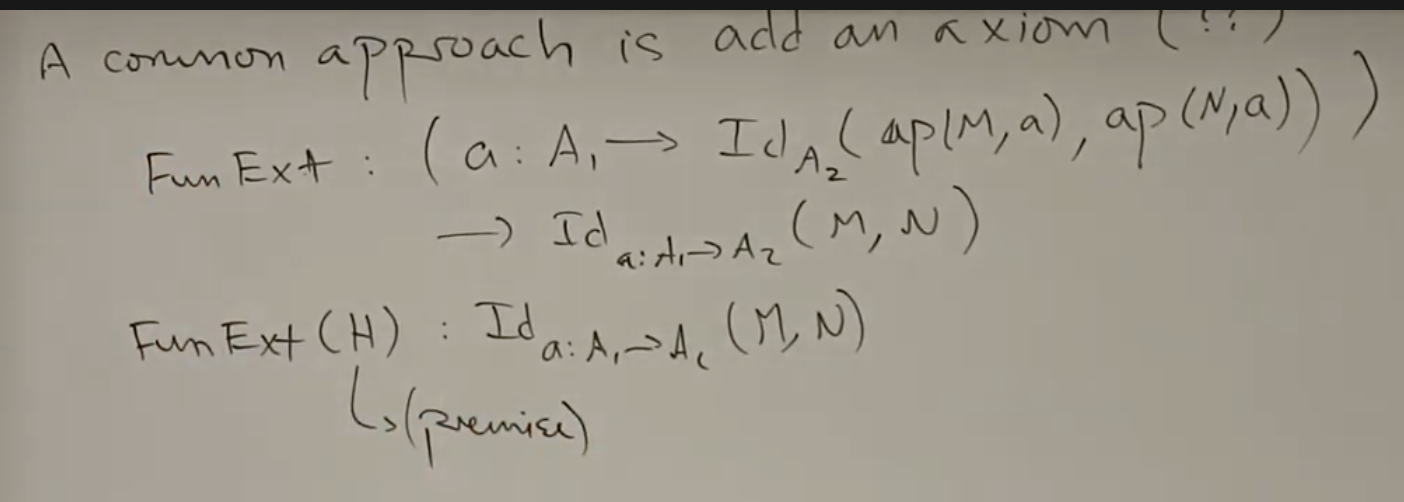 A common approach is add an axiom (!!)
FunExt : (a : A₁ → Id_{A₂}(ap(M,a), ap(N,a)))
→ Id_{a:A₁→A₂}(M, N)
FunExt(H) : Id_{a:A₁→A₂}(M, N)
↳(premise)